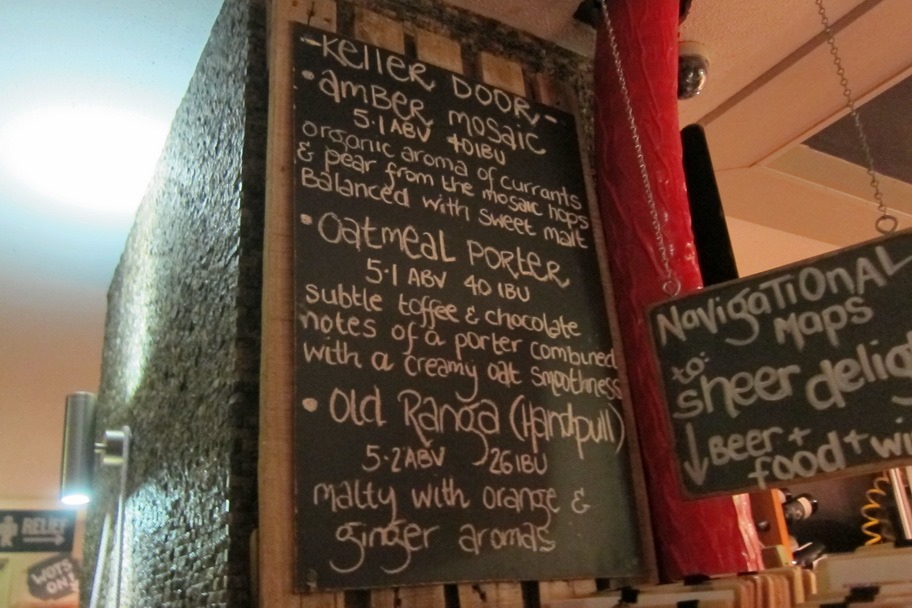 -Keller Door-
• amber mosaic
5.1 ABV 40 IBU
organic aroma of currants
& pear from the mosaic hops
Balanced with sweet malt
• Oatmeal Porter
5.1 ABV 40 IBU
subtle toffee & chocolate
notes of a porter combined
with a creamy oat smoothness
• Old Ranga (Handpull)
5.2 ABV 26 IBU
malty with orange &
ginger aromas
NavigaTiONAL
Maps
to:
sheer delig
↓ Beer +
food + wi
RELIEF
WOTS
ON!